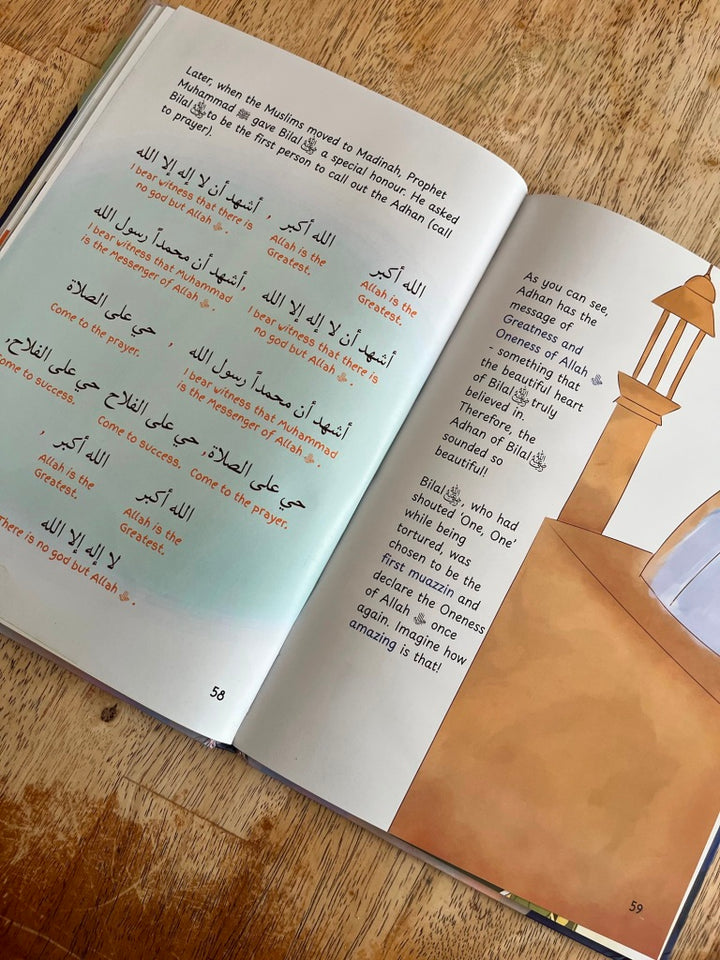 Later, when the Muslims moved to Madinah, Prophet
Muhammad ﷺ gave Bilal a special honour. He asked
Bilal to be the first person to call out the Adhan (call
to prayer).
الله أكبر
Allah is the
Greatest.
الله أكبر ,
Allah is the
Greatest.
أشهد أن لا إله إلا الله
I bear witness that there is
no god but Allah ﷻ.
أشهد أن لا إله إلا الله ,
I bear witness that there is
no god but Allah ﷻ.
أشهد أن محمداً رسول الله
I bear witness that Muhammad
is the Messenger of Allah ﷻ.
أشهد أن محمداً رسول الله ,
I bear witness that Muhammad
is the Messenger of Allah ﷻ.
حي على الصلاة
Come to the prayer.
حي على الصلاة,
Come to the prayer.
حي على الفلاح
Come to success.
حي على الفلاح,
ome to success.
الله أكبر
Allah is the
Greatest.
الله أكبر ,
Allah is the
Greatest.
لا إله إلا الله
There is no god but Allah ﷻ.
58
As you can see,
Adhan has the
message of
Greatness and
Oneness of Allah ﷻ
- something that
the beautiful heart
of Bilal truly
believed in.
Therefore, the
Adhan of Bilal
sounded so
beautiful!
Bilal, who had
shouted ‘One, One’
while being
tortured, was
chosen to be the
first muazzin and
declare the Oneness
of Allah ﷻ once
again. Imagine how
amazing is that!
59